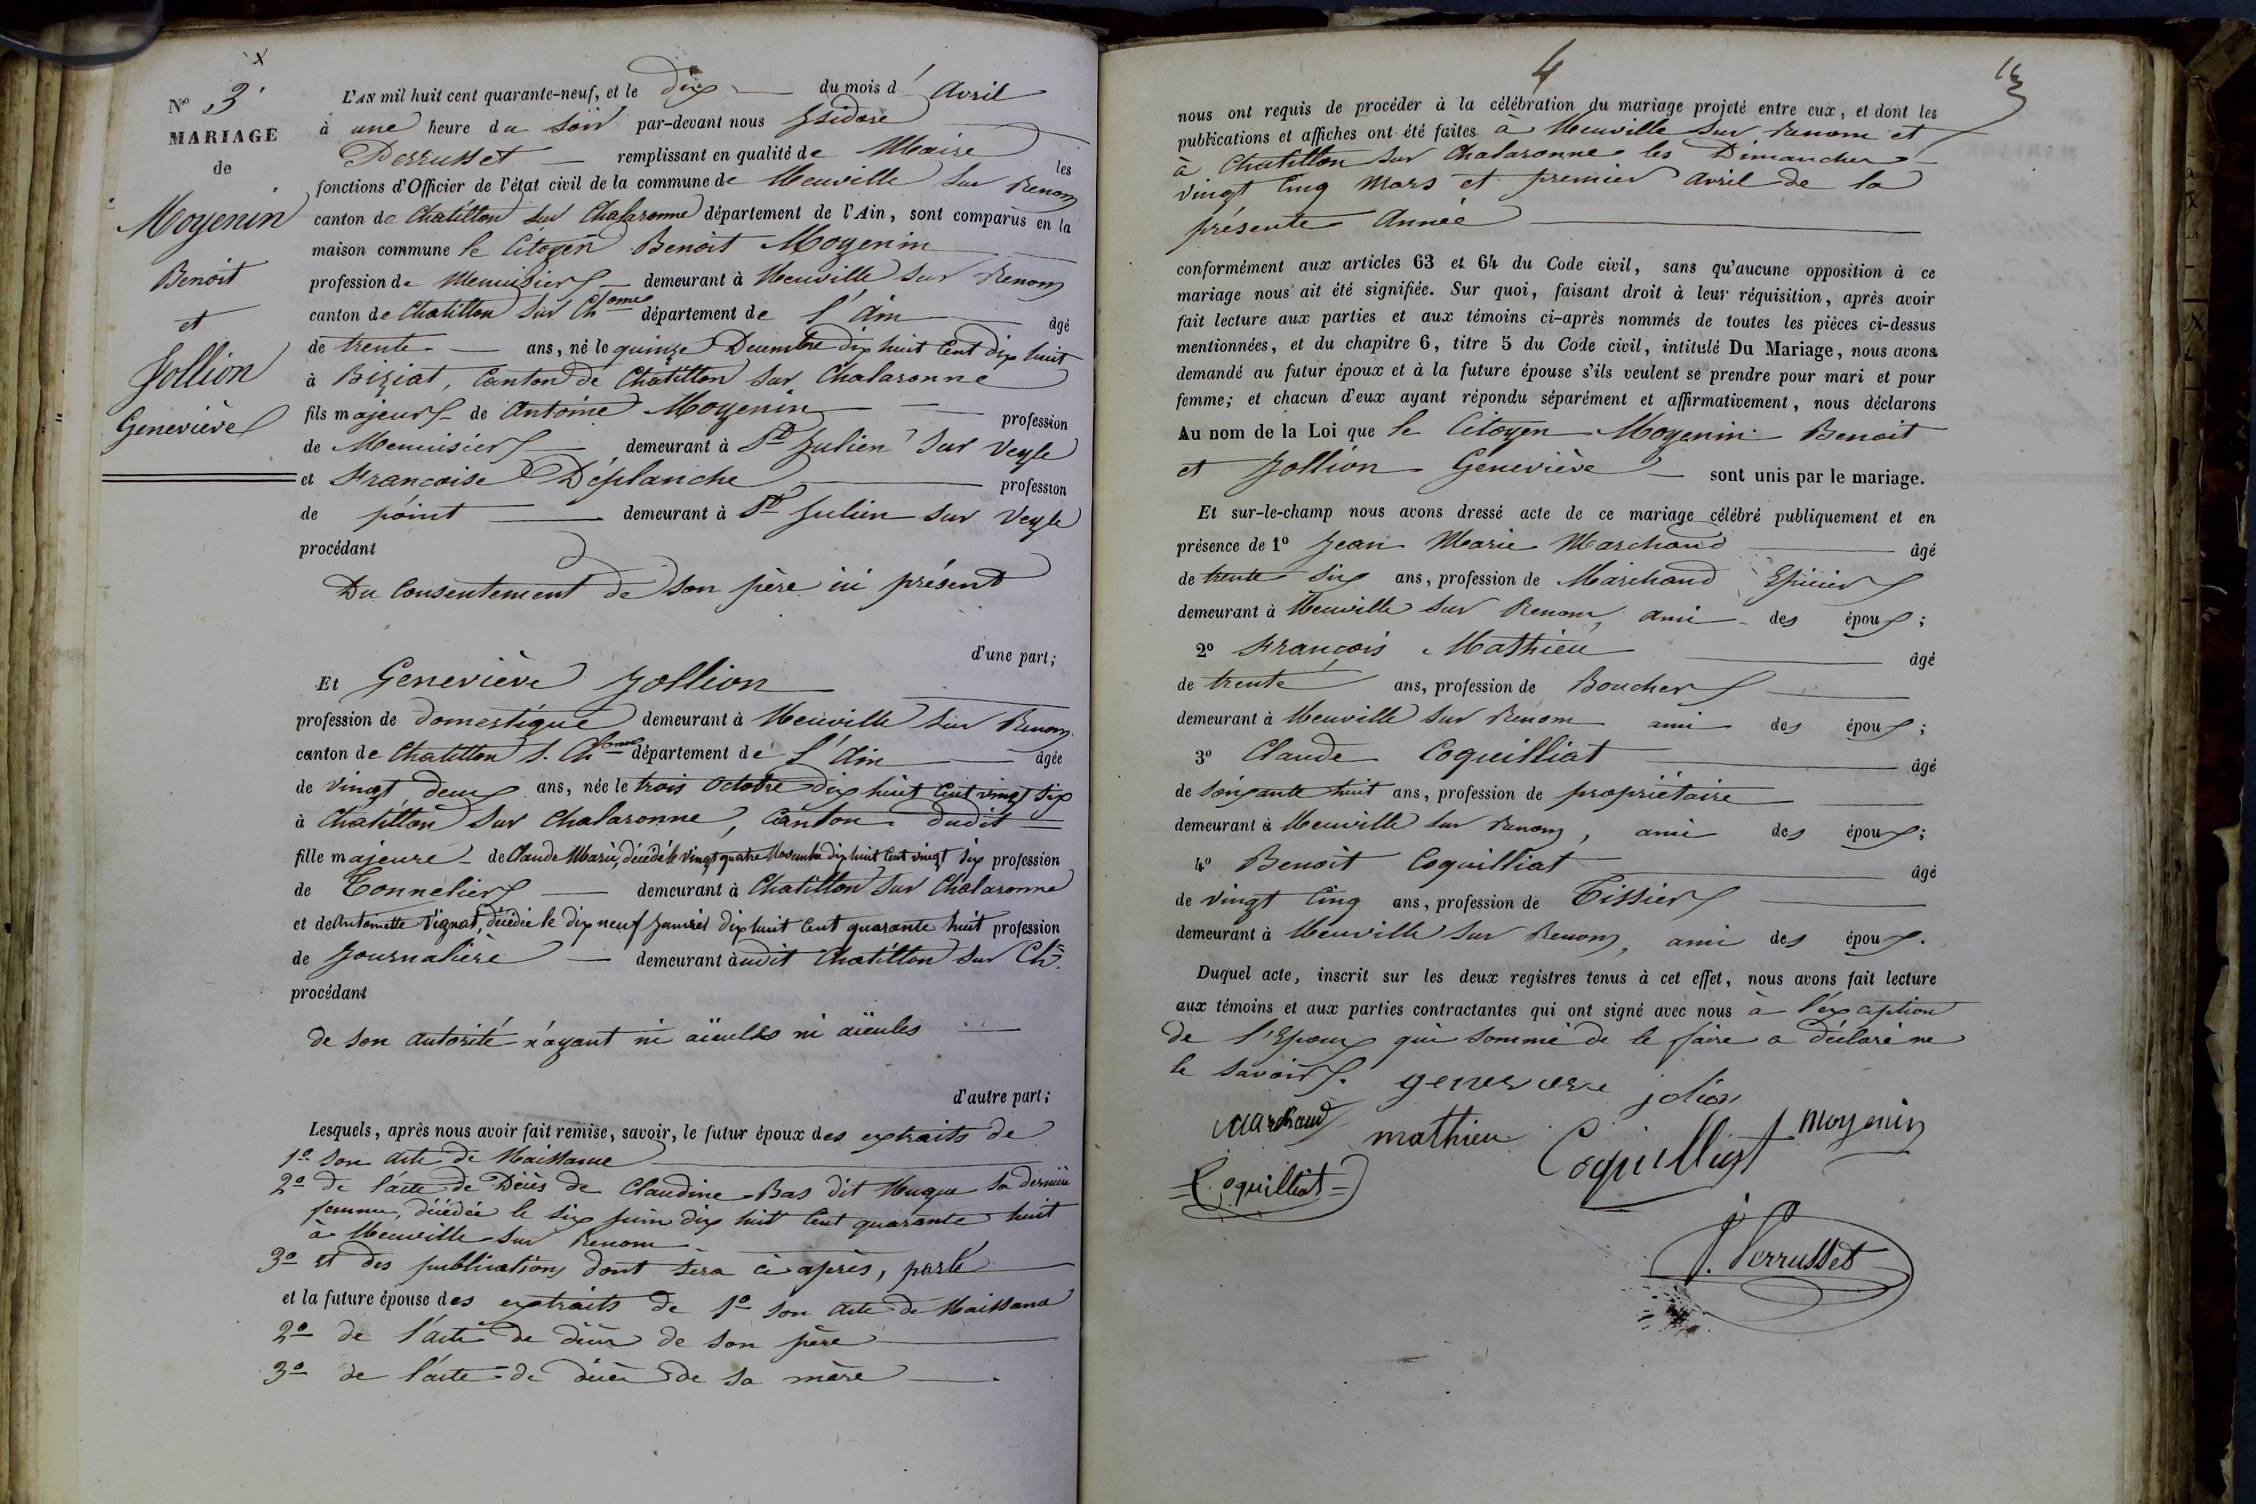 x
N° 3
MARIAGE
de
Moyenin
Benoit
et
Jollion
Geneviève
L'AN mil huit cent quarante-neuf, et le dix du mois d'Avril
à une heure du soir par-devant nous Isidore
Perrusset remplissant en qualité de Maire les
fonctions d'Officier de l'état civil de la commune de Neuville sur Renom
canton de Chatillon sur Chalaronne département de l'Ain, sont comparus en la
maison commune le Citoyen Benoit Moyenin
profession de Menuisier demeurant à Neuville sur Renom
canton de Chatillon sur Chomne département de l'Ain âgé
de trente ans, né le quinze Decembre dix huit Cent dix huit
à Biziat, Canton de Chatillon sur Chalaronne
fils majeur de Antoine Moyenin profession
de Menuisier demeurant à St Julien sur Veyle
et Francoise Déplanche profession
de point demeurant à St Julien sur Veyle
procédant
Du Consentement de son père ici présent
d'une part;
Et Geneviève Jollion
profession de domestique demeurant à Neuville sur Renom
canton de Chatillon s. Chomne département de l'Ain âgée
de vingt deux ans, née le trois Octobre dix huit Cent vingt six
à Chatillon sur Chalaronne, Canton dudit
fille majeure de Claude Marie, décédé le vingt quatre Novembre dix huit Cent vingt six profession
de Tonnelier demeurant à Chatillon sur Chalaronne
et de Antoinette Vignat, décédée le dix neuf Janvier dix huit Cent quarante huit profession
de Journalière demeurant audit Chatillon sur Ch.
procédant
de son autorité n'ayant ni aïeulls ni aïeules
d'autre part;
Lesquels, après nous avoir fait remise, savoir, le futur époux des extraits de
1° son acte de Naissance
2° de l'acte de Décès de Claudine Bas dit Nugue sa dernière
femme, décédée le six juin dix huit Cent quarante huit
à Neuville sur Renom
3° et des publications dont sera ci après, parlé
et la future épouse des extraits de 1° son acte de Naissance
2° de l'acte de décès de son père
3° de l'acte de décès de sa mère
4
nous ont requis de procéder à la célébration du mariage projeté entre eux, et dont les
publications et affiches ont été faites à Neuville sur Renom et
à Chatillon sur Chalaronne les Dimanches
vingt Cinq Mars et premier Avril de la
présente Année
conformément aux articles 63 et 64 du Code civil, sans qu'aucune opposition à ce
mariage nous ait été signifiée. Sur quoi, faisant droit à leur réquisition, après avoir
fait lecture aux parties et aux témoins ci-après nommés de toutes les pièces ci-dessus
mentionnées, et du chapitre 6, titre 5 du Code civil, intitulé Du Mariage, nous avons
demandé au futur époux et à la future épouse s'ils veulent se prendre pour mari et pour
femme; et chacun d'eux ayant répondu séparément et affirmativement, nous déclarons
Au nom de la Loi que le Citoyen Moyenin Benoit
et Jollion Geneviève sont unis par le mariage.
Et sur-le-champ nous avons dressé acte de ce mariage célébré publiquement et en
présence de 1° Jean Marie Marchand âgé
de trente six ans, profession de Marchand Epicier
demeurant à Neuville sur Renom, ami des époux;
2° François Mathieu âgé
de trente ans, profession de Boucher
demeurant à Neuville sur Renom ami des époux;
3° Claude Coquilliat âgé
de soixante huit ans, profession de propriétaire
demeurant à Neuville sur Renom, ami des époux;
4° Benoit Coquilliat âgé
de vingt Cinq ans, profession de Tissier
demeurant à Neuville sur Renom, ami des époux.
Duquel acte, inscrit sur les deux registres tenus à cet effet, nous avons fait lecture
aux témoins et aux parties contractantes qui ont signé avec nous à l'exception
de l'Epoux qui sommé de le faire a déclaré ne
le savoir.
genevieve jolion
Marchand mathieu Coquilliat moyenin
Coquilliat
J. Perrusset